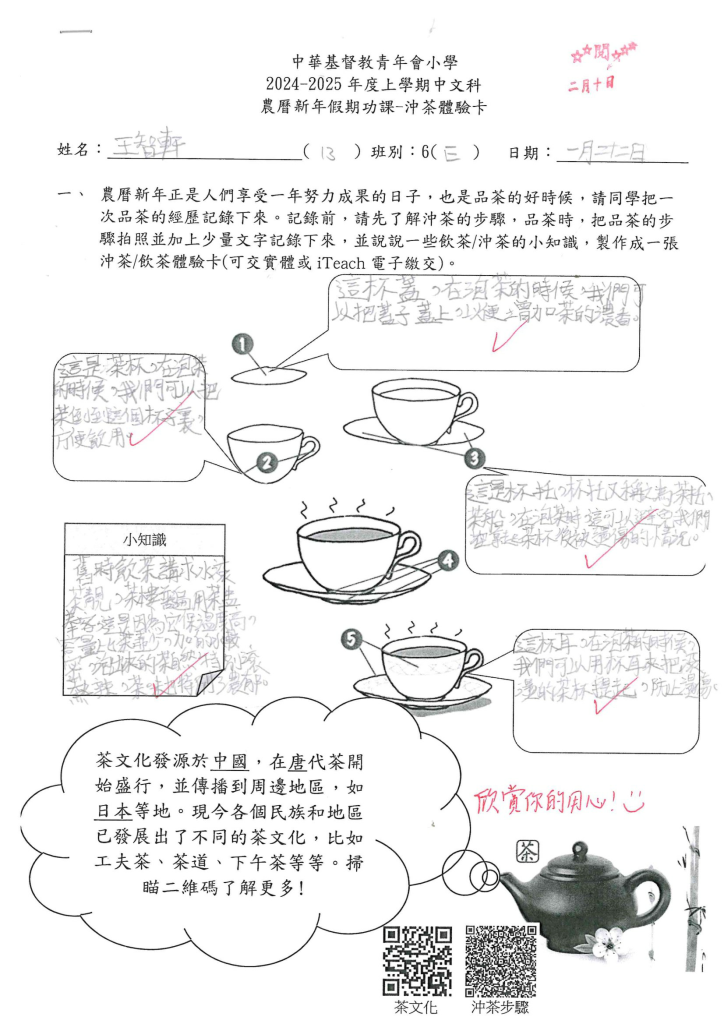 ☆☆閱☆☆☆
二月十日
中華基督教青年會小學
2024-2025 年度上學期中文科
農曆新年假期功課-沖茶體驗卡
姓名：王智軒( 13 ) 班別：6(E) 日期：一月二十二日
一、 農曆新年正是人們享受一年努力成果的日子，也是品茶的好時候，請同學把一
次品茶的經歷記錄下來。記錄前，請先了解沖茶的步驟，品茶時，把品茶的步
驟拍照並加上少量文字記錄下來，並說說一些飲茶/沖茶的小知識，製作成一張
沖茶/飲茶體驗卡(可交實體或 iTeach 電子繳交)。
這杯蓋，在泡茶的時候，我們可
以把蓋子蓋上，以便增加茶的濃香。
1
這是茶杯，在泡茶
的時候，我們可以把
茶倒到這個杯子裏，
方便飲用。
2
3
這是杯托，杯托又稱為茶托、
茶船，在泡茶時，這可以我們
茶杯的情況。
4
小知識
舊時飲茶講求水滾
茶靚，茶樓會用茶盅
這是因為它保溫
5
這杯耳，在泡茶的時候，
我們可以用杯耳來把
燙的茶杯提起，防止燙傷。
茶文化發源於中國，在唐代茶開
始盛行，並傳播到周邊地區，如
日本等地。現今各個民族和地區
已發展出了不同的茶文化，比如
工夫茶、茶道、下午茶等等。掃
瞄二維碼了解更多！
欣賞你的用心！
茶
茶文化
沖茶步驟